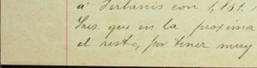 á Serbanis con 1,151.
Sres. que en la proxima
el resto, por tener muy